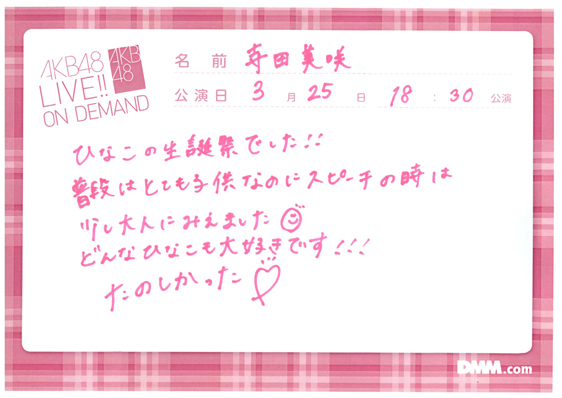 AKB48
LIVE!!
ON DEMAND
AKB
48
名前 寺田美咲
公演日 3月25日 18:30公演
ひなこの生誕祭でした!!
普段はとても子供なのにスピーチの時は
少し大人にみえました
どんなひなこも大好きです!!!
たのしかった
DMM.com